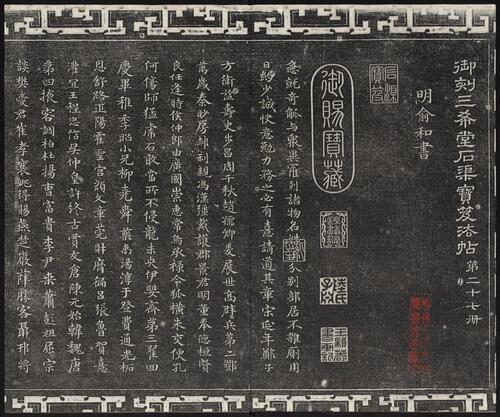 御刻三希堂石渠寶笈法帖 第二十七冊
明俞和書
石渠寶笈
御賜寶藏
急就奇觚與衆異羅列諸物名姓字分別部居不雜廁用
日約少誠快意勉力務之必有憙請道其章宋延年鄭子
方衛益壽史步昌周千秋趙孺卿爰展世高辟兵第二鄧
萬歲秦眇房郝利親馮漢彊戴護郡景君明董奉德桓賢
良任逢時侯仲郎由廣國榮惠常烏承祿令狐橫朱交便孔
何傷師猛虎石敢當所不侵龍未央伊嬰齊第三翟回
慶畢稚季昭小兄柳堯舜藥禹湯淳于登費通光柘
恩舒路正陽霍聖宮顏文章莞財歷遍呂張魯賀憙
灌宜王程忠信吳仲皇許終古賈友倉陳元始韓魏唐
第四掖容調柏杜楊曹富貴李尹桑蕭彭祖屈宗
談樊愛君崔孝襄姚得賜燕楚嚴薛勝客聶邗將